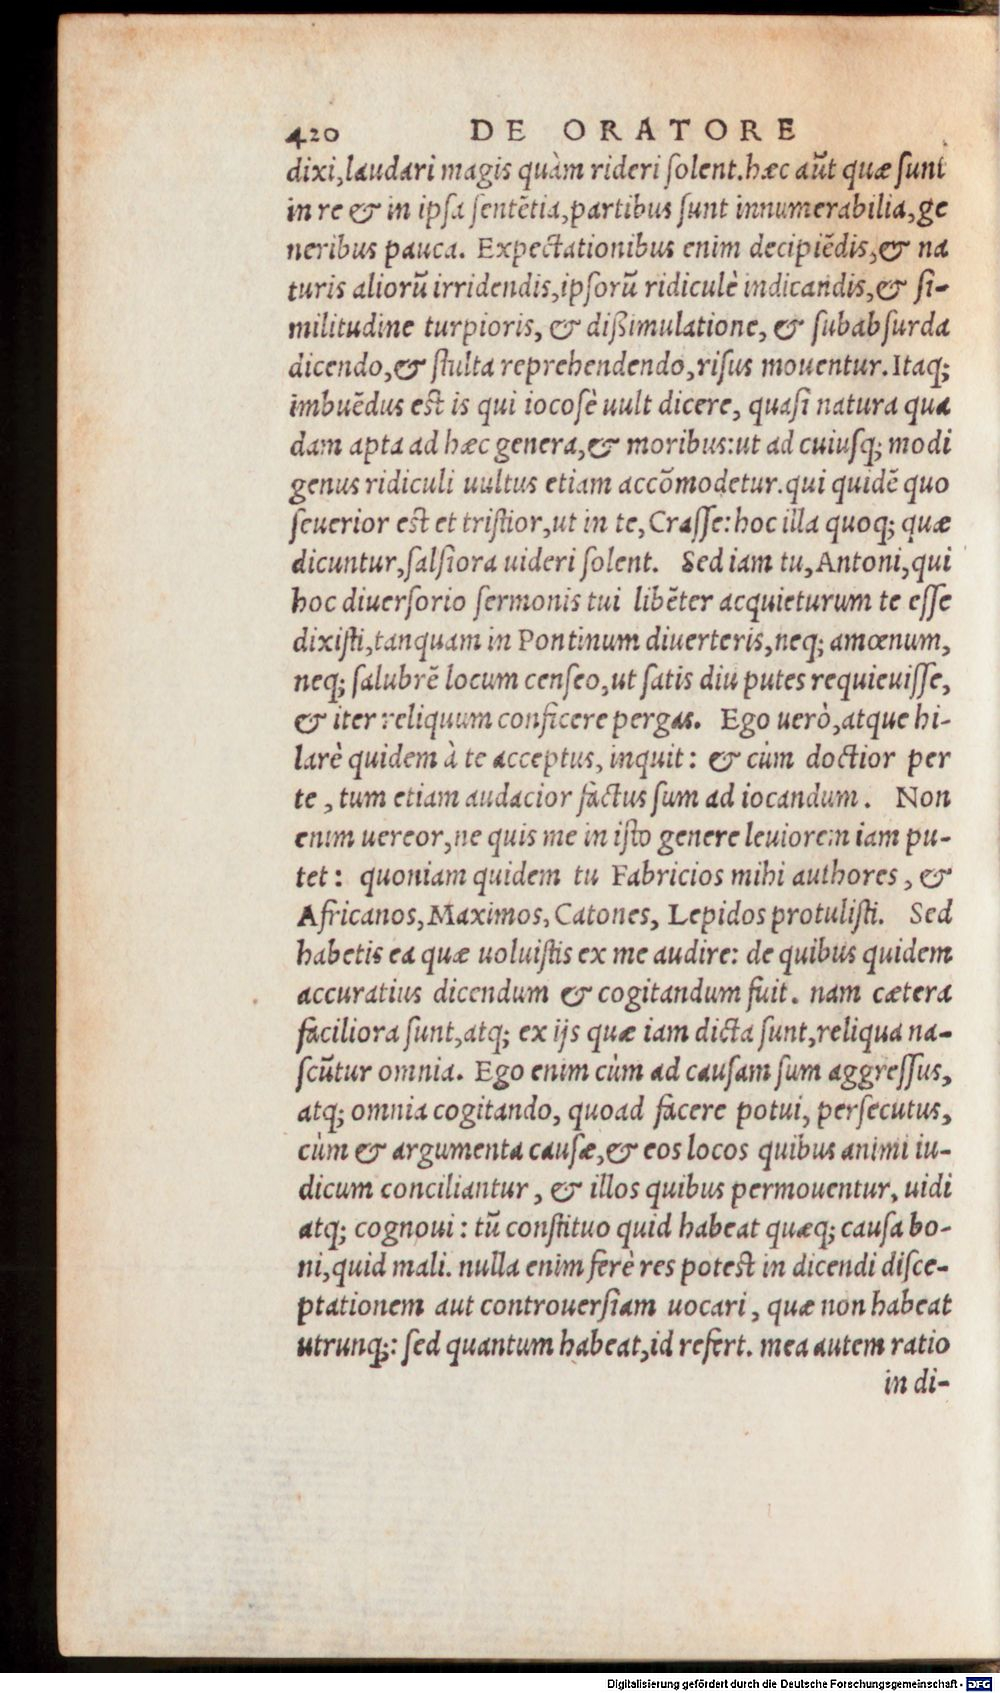 420 DE ORATORE
dixi,laudari magis quàm rideri ſolent.hæc aũt quæ ſunt
in re & in ipſa ſentẽtia,partibus ſunt innumerabilia,ge
neribus pauca. Expectationibus enim decipiẽdis,& na
turis aliorũ irridendis,ipſorũ ridiculè indicandis,& ſi-
militudine turpioris, & dißimulatione, & ſubabſurda
dicendo,& ſtulta reprehendendo,riſus mouentur.Itaq;
imbuẽdus est is qui iocoſè uult dicere, quaſi natura qua
dam apta ad hæc genera,& moribus:ut ad cuiuſq; modi
genus ridiculi uultus etiam accõmodetur.qui quidẽ quo
ſeuerior est et triſtior,ut in te, Craſſe:hoc illa quoq; quæ
dicuntur,ſalſiora uideri ſolent. Sed iam tu,Antoni,qui
hoc diuerſorio ſermonis tui libẽter acquieturum te eſſe
dixiſti,tanquam in Pontinum diuerteris,neq; amœnum,
neq; ſalubrẽ locum cenſeo,ut ſatis diu putes requieuiſſe,
& iter reliquum conficere pergas. Ego uerò,atque hi-
larè quidem à te acceptus, inquit: & cùm doctior per
te, tum etiam audacior factus ſum ad iocandum. Non
enim uereor,ne quis me in iſto genere leuiorem iam pu-
tet: quoniam quidem tu Fabricios mihi authores, &
Africanos,Maximos,Catones, Lepidos protuliſti. Sed
habetis ea quæ uoluiſtis ex me audire: de quibus quidem
accuratius dicendum & cogitandum fuit. nam cætera
faciliora ſunt,atq; ex ijs quæ iam dicta ſunt,reliqua na-
ſcũtur omnia. Ego enim cùm ad cauſam ſum aggreſſus,
atq; omnia cogitando, quoad facere potui, perſecutus,
cùm & argumenta cauſæ,& eos locos quibus animi iu-
dicum conciliantur, & illos quibus permouentur, uidi
atq; cognoui: tũ conſtituo quid habeat quæq; cauſa bo-
ni,quid mali. nulla enim ferè res potest in dicendi diſce-
ptationem aut controuerſiam uocari, quæ non habeat
utrunq;: ſed quantum habeat,id refert. mea autem ratio
in di-
Digitalisierung gefördert durch die Deutsche Forschungsgemeinschaft - DFG